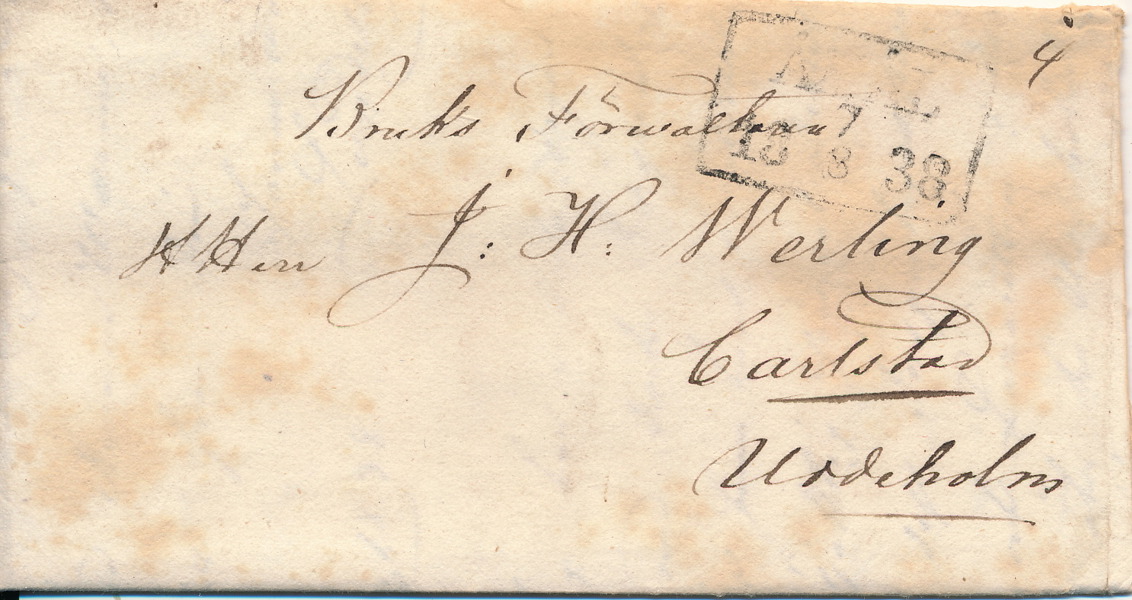 4
Bruks Förwaltaren
ÅMÅL
7
18 8 38
H Herr J: H: Werling
Carlstad
Uddeholm